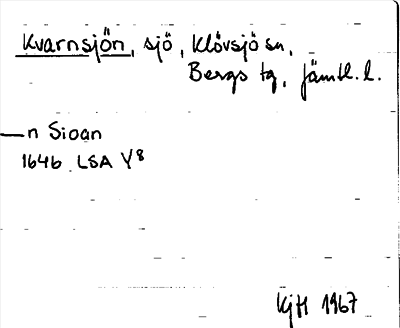 Kvarnsjön, sjö, Klövsjö sn,
Bergs tg, Jämtl. l.
—n Sioan
1646 LSA Y8
KjH 1967